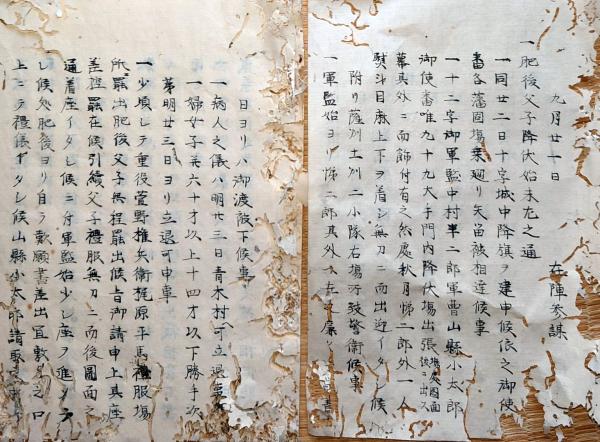 九月廿一日
在陣参謀
一肥後父子降伏始末左之通
一同廿二日十字城中降旗ヲ建中候依之御使
番各藩固場乗廻り矢留被相達候事
一十二字御軍監中村半二郎軍曹山縣小太郎
御使番唯九十九大手門内降伏場出張
幕其外ニ而飾付有之然處秋月悌二郎外一人
熨斗目麻上下ヲ着シ無刀ニ而出迎イタシ候
附り薩州土州二小隊右場所致警衛候事
一軍監始ヨリ悌二郎其外ヘ左
日ヨリハ御渡被下候事
一病人之儀ハ明廿三日青木村可立退事
一婦女子并六十才以上十四才以下勝手次
第明廿三日ヨリ立退可申事
一少頃シテ重役萱野権兵衛梶原平馬禮服場
所罷出肥後父子無程罷出候旨御請申上其座
差控罷在候引續父子禮服無刀ニ而後圖面之
通着座イタシ候ニ付軍監始少シ座ヲ進
シ候処肥後ヨリ自ラ歎願書差出宜敷ト之口
上ニテ禮儀イタシ候山縣小太郎請取